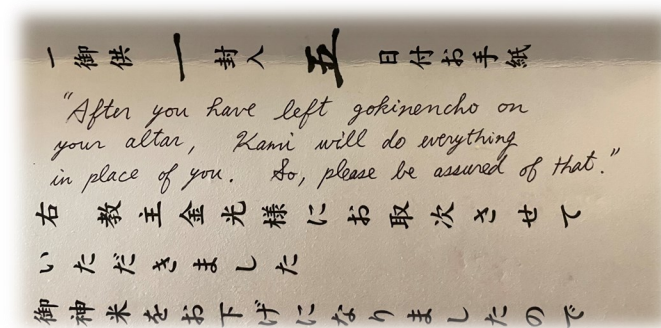 一 御供 一 封入 五 日付お手紙
"After you have left gokinencho on
your altar, Kami will do everything
in place of you. So, please be assured of that."
右 教主金光様にお取次させて
いただきました
御神米をお下げになりましたので